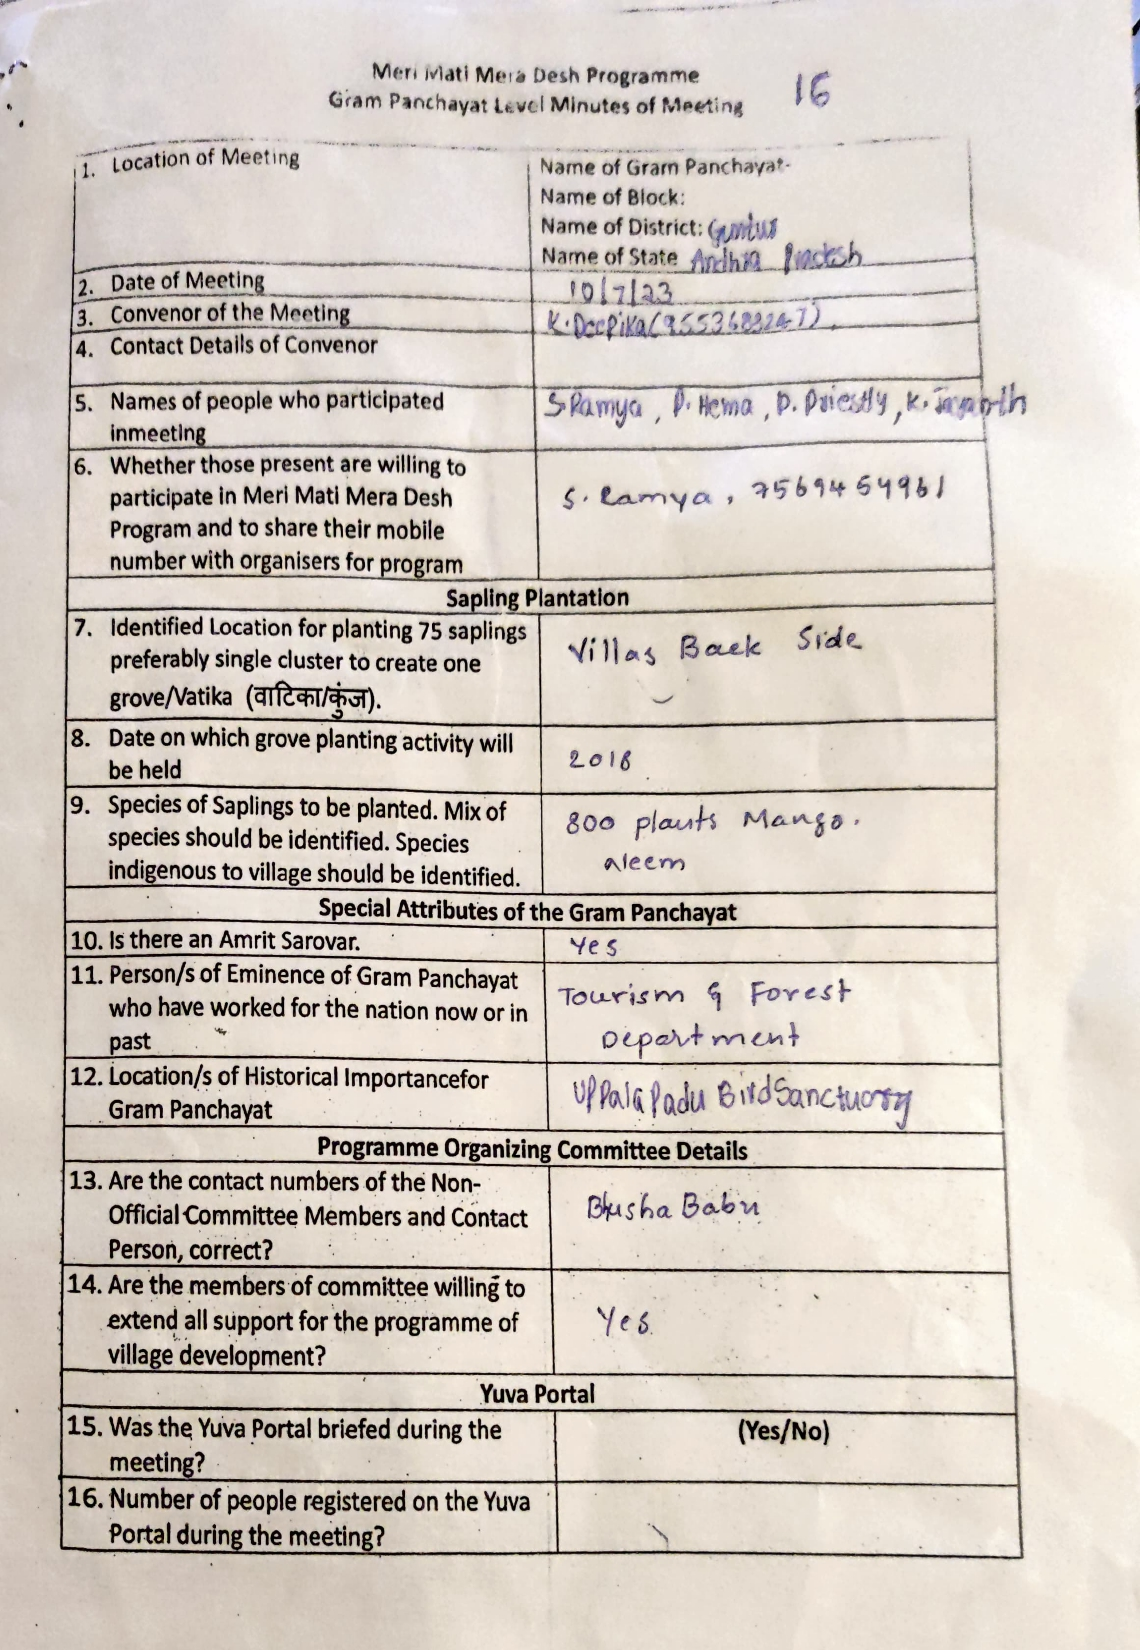 Meri Mati Mera Desh Programme
Gram Panchayat Level Minutes of Meeting
16
1. Location of Meeting
Name of Gram Panchayat-
Name of Block:
Name of District: Guntur
Name of State Andhra Pradesh
2. Date of Meeting
10/7/23
3. Convenor of the Meeting
K. Deepika (9553683247).
4. Contact Details of Convenor
5. Names of people who participated
inmeeting
S. Ramya, P. Hema, D. Priestly, K.
6. Whether those present are willing to
participate in Meri Mati Mera Desh
Program and to share their mobile
number with organisers for program
S. Ramya, 7569459961
Sapling Plantation
7. Identified Location for planting 75 saplings
preferably single cluster to create one
grove/Vatika (वाटिका/कुंज).
Villas Back Side
8. Date on which grove planting activity will
be held
2018
9. Species of Saplings to be planted. Mix of
species should be identified. Species
indigenous to village should be identified.
800 plants Mango.
Neem
Special Attributes of the Gram Panchayat
10. Is there an Amrit Sarovar.
Yes
11. Person/s of Eminence of Gram Panchayat
who have worked for the nation now or in
past
Tourism & Forest
Department
12. Location/s of Historical Importancefor
Gram Panchayat
Uppalapadu Bird Sanctuory
Programme Organizing Committee Details
13. Are the contact numbers of the Non-
Official Committee Members and Contact
Person, correct?
Busha Babu
14. Are the members of committee willing to
extend all support for the programme of
village development?
Yes
Yuva Portal
15. Was the Yuva Portal briefed during the
meeting?
(Yes/No)
16. Number of people registered on the Yuva
Portal during the meeting?